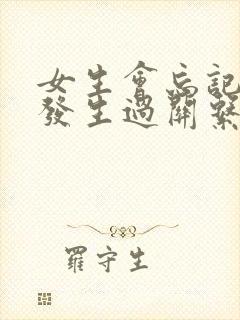 女生會忘記
發生過關繫
羅守生